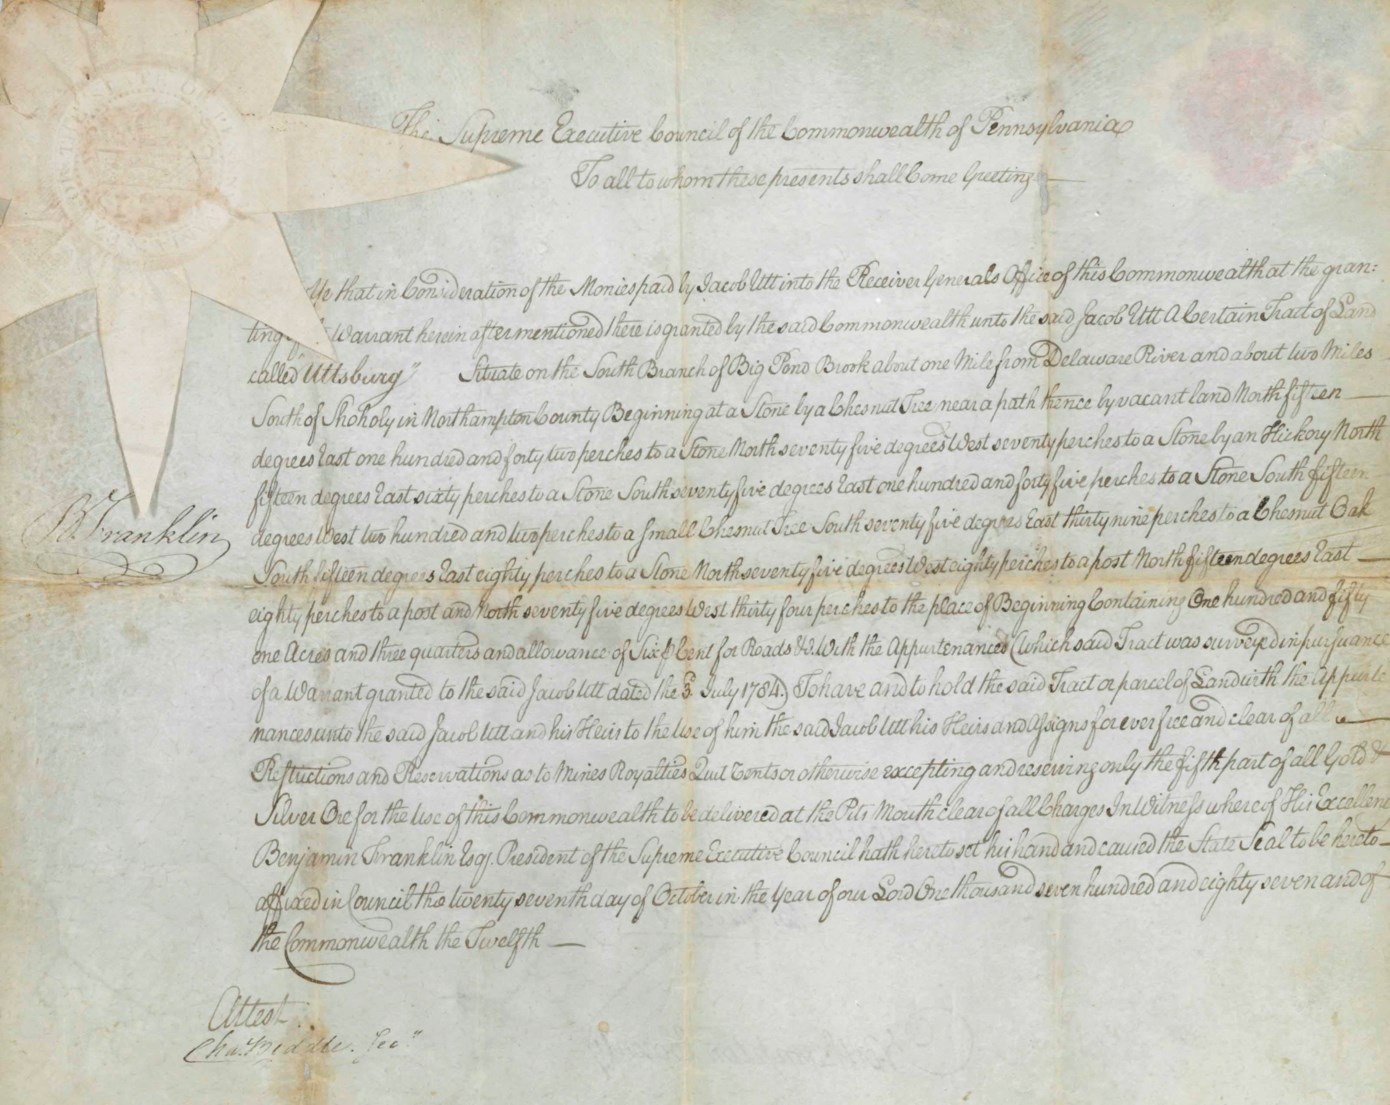 The Supreme Executive Council of the Commonwealth of Pennsylvania
To all to whom these presents shall Come Greeting
Ye that in Consideration of the Monies paid by Jacob Utt into the Receiver Generals Office of this Commonwealth at the gran:
ting Warrant herein after mentioned there is granted by the said Commonwealth unto the said Jacob Utt A Certain Tract of Land
called "Uttsburg" Situate on the South Branch of Big Pond Brook about one Mile from Delaware River and about two Miles
South of Shoholy in Northampton County Beginning at a Stone by a Chesnut Tree near a path thence by vacant land North fifteen
degrees East one hundred and forty two perches to a Stone North seventy five degrees West seventy perches to a Stone by an Hickory North
fifteen degrees East sixty perches to a Stone South seventy five degrees East one hundred and forty five perches to a Stone South fifteen
degrees West two hundred and two perches to a small Chesnut Tree South seventy five degrees East thirty nine perches to a Chesnut Oak
South fifteen degrees East eighty perches to a Stone North seventy five degrees West eighty perches to a post North fifteen degrees East
eighty perches to a post and North seventy five degrees West thirty four perches to the place of Beginning Containing One hundred and fifty
one Acres and three quarters and allowance of Six P Cent for Roads &c. With the Appurtenances (which said Tract was surveyed in pursuance
of a Warrant granted to the said Jacob Utt dated the 3 July 1784.) To have and to hold the said Tract or parcel of Land with the Appurte
nances unto the said Jacob Utt and his Heirs to the Use of him the said Jacob Utt his Heirs and Assigns forever free and clear of all
Restrictions and Reservations as to Mines Royalties Quit Tents or otherwise excepting and reserving only the fifth part of all Gold &
Silver Ore for the Use of this Commonwealth to be delivered at the Pits Mouth clear of all Charges In Witness whereof His Excellency
Benjamin Franklin Esq. President of the Supreme Executive Council hath hereto set his hand and caused the State Seal to be hereto
affixed in Council the twenty seventh day of October in the Year of our Lord One thousand seven hundred and eighty seven and of
the Commonwealth the Twelfth
B. Franklin
Attest
Cha. Biddle. Sec.